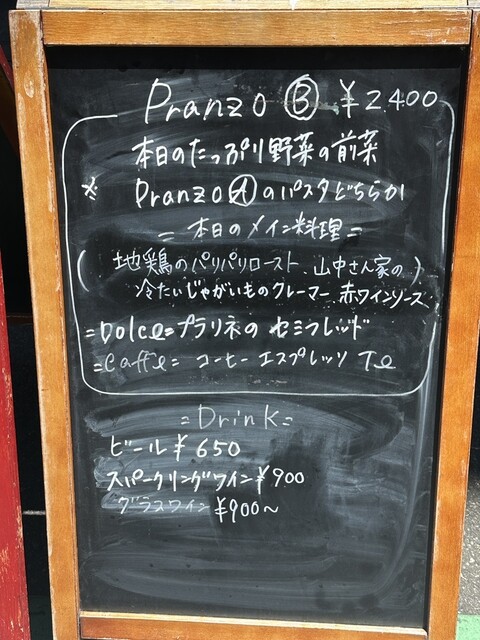 Pranzo Ⓑ ¥2400
本日のたっぷり野菜の前菜
※ Pranzo Ⓐ のパスタどちらか
= 本日のメイン料理 =
(地鶏のパリパリロースト、山中さん家の)
冷たいじゃがいものクレーマー、赤ワインソース
=Dolce= プラリネの セミフレッド
=Caffe= コーヒー エスプレッソ Te
=Drink=
ビール ¥650
スパークリングワイン ¥900
グラスワイン ¥900〜